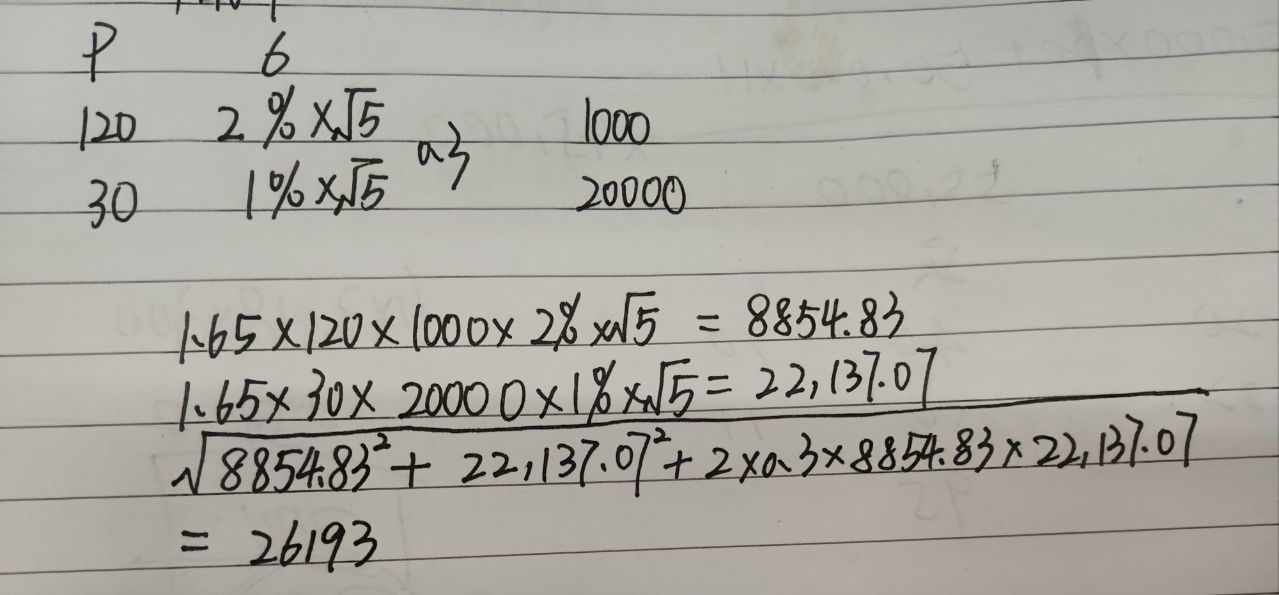 P 6
120 2%×√5 1000
0.3
30 1%×√5 20000
1.65×120×1000×2%×√5 = 8854.83
1.65×30×20000×1%×√5 = 22,137.07
√8854.83²+ 22,137.07²+2×0.3×8854.83×22,137.07
= 26193